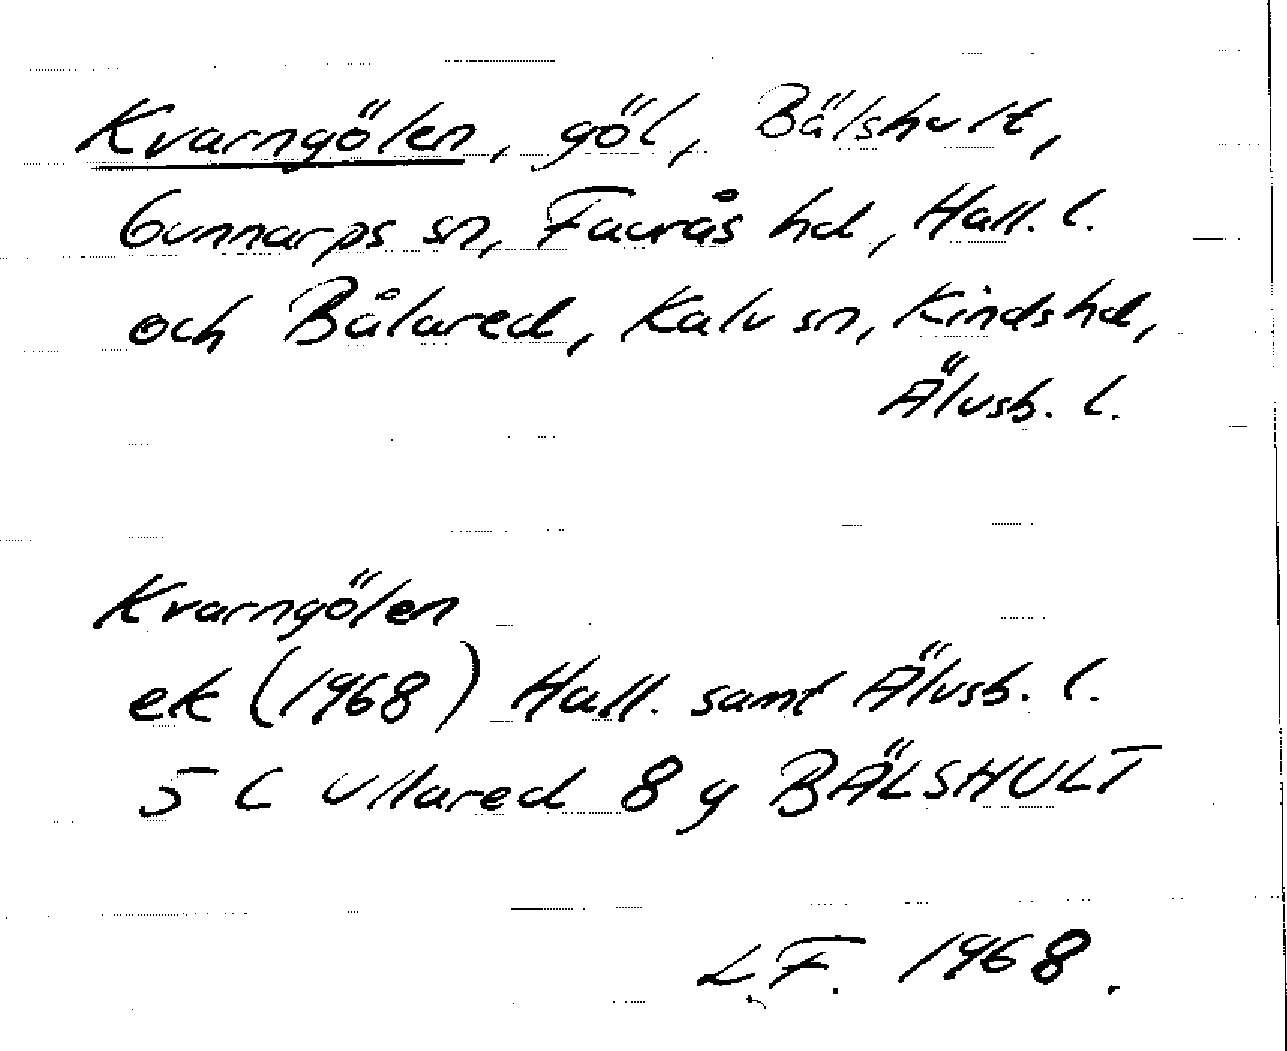 Kvarngölen, göl, Bälshult,
Gunnarps sn, Faurås hd, Hall. l.
och Bålared, Kalv sn, Kinds hd,
Älvsb. l.
Kvarngölen
ek (1968) Hall. samt Älvsb. l.
5 C Ullared 8 g BÄLSHULT
L.F. 1968.